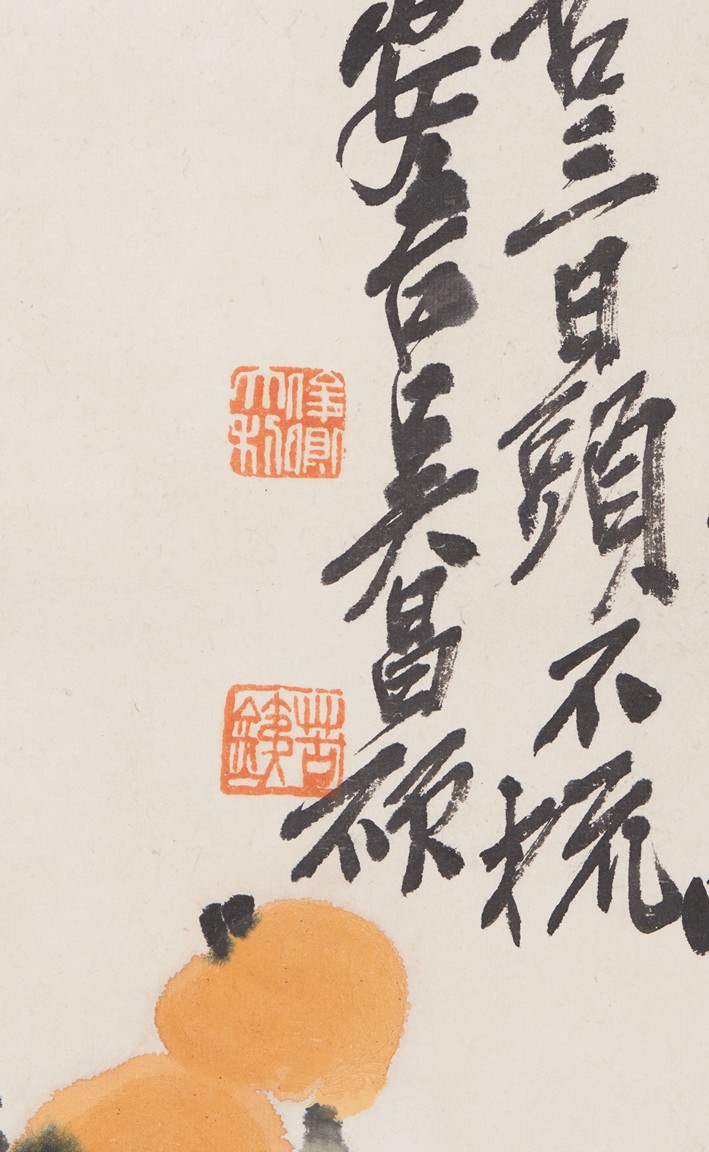 三日頭不梳
安吉吳昌碩
俊卿大利
苦銕